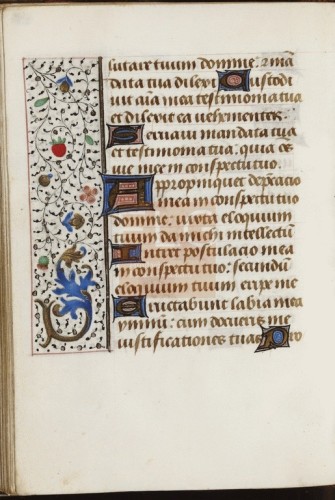 lutare tuum domine: 2 mā
data tua dilexi Custodi
uit aīa mea testimonia tua
et dilexit ea vehementer.
Seruaui mandata tua
et testimonia tua: quia oēs
vie mee in conspectu tuo.
Appropinquet dep̄cacio
mea in conspectu tuo
domine: iuxta eloquium
tuum da michi intellectū
Intret postulacio mea
in conspectu tuo: secundū
eloquium tuum eripe me
Eructabunt labia mea
ymnum: cum docueris me
iustificationes tuas Pro